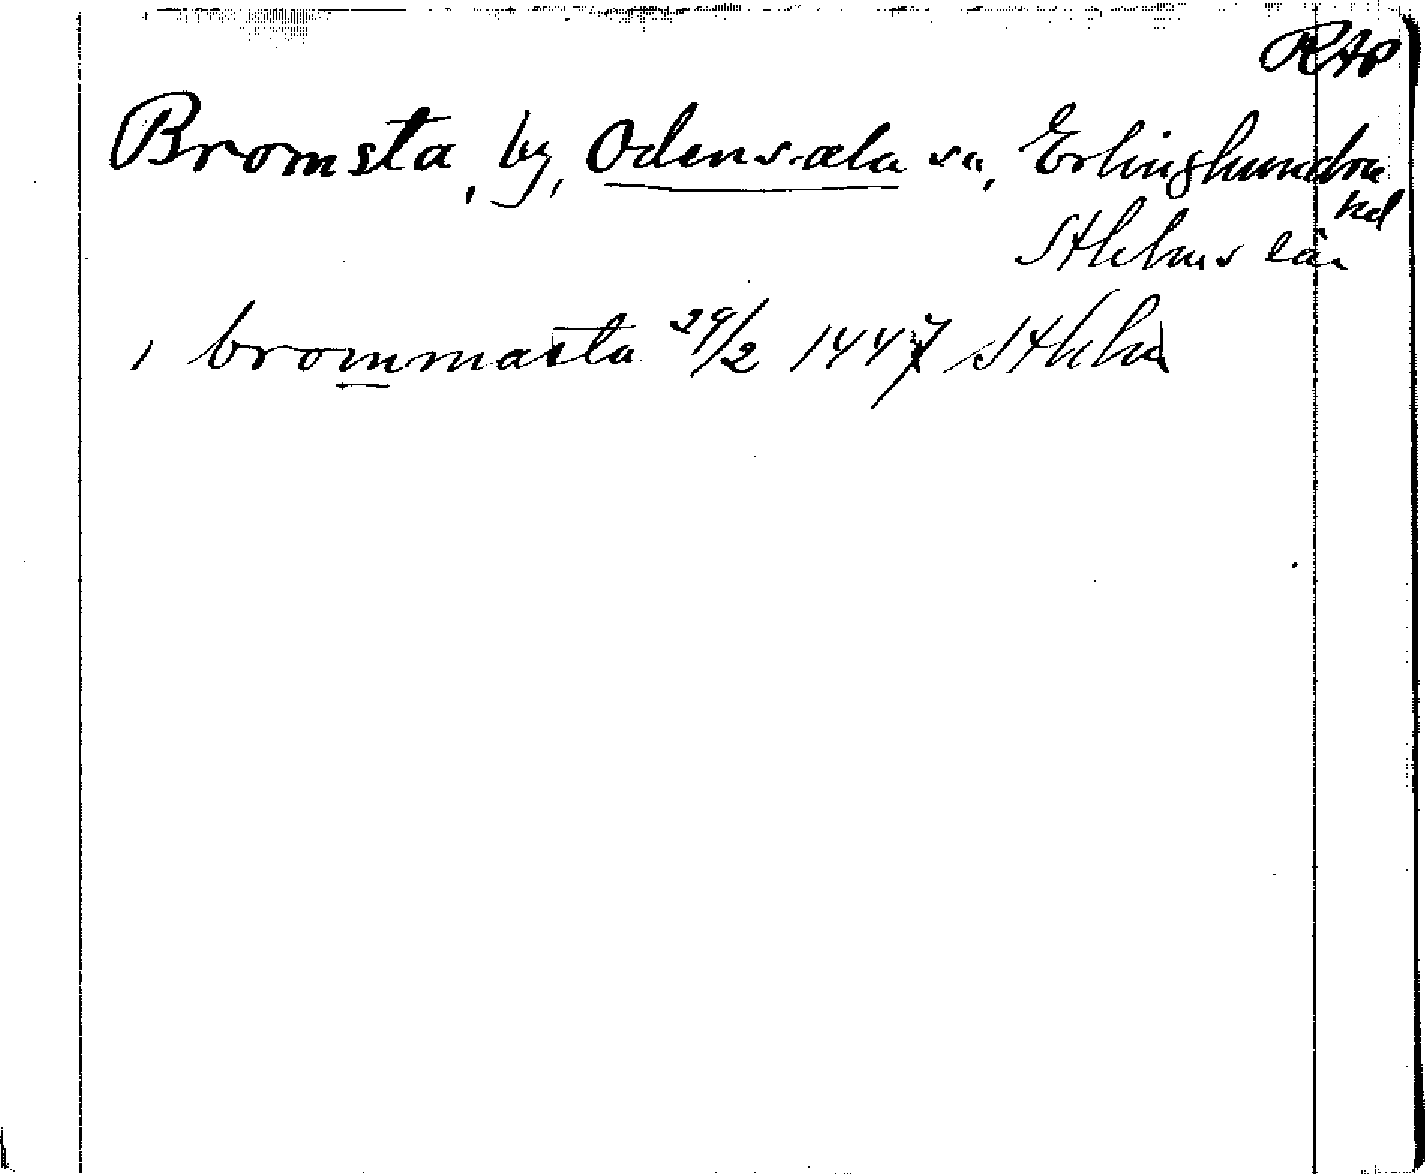 RAP
Bromsta, by, Odensala sn, Erlinghundra
hd
Sthlms län
i brommasta 29/2 1447 Sthlm